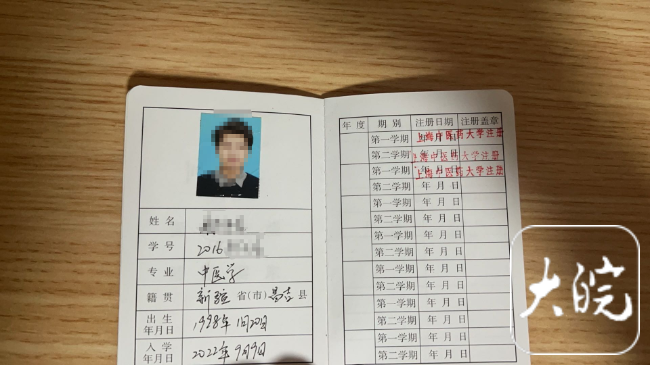 姓名
学号 2016
专业 中医学
籍贯 新疆 省(市) 昌吉 县
出生年月日 1998年1月20日
入学年月日 2022年9月9日
年度 期别 注册日期 注册盖章
第一学期 年 月 日 上海中医药大学注册
第二学期 年 月 日 上海中医药大学注册
第一学期 年 月 日 上海中医药大学注册
第二学期 年 月 日
第一学期 年 月 日
第二学期 年 月 日
第一学期 年 月 日
第二学期 年 月 日
第一学期 年 月 日
第二学期 年 月 日
第一学期 年 月 日
第二学期 年 月 日
第一学期 年 月 日
第二学期 年 月 日
大皖